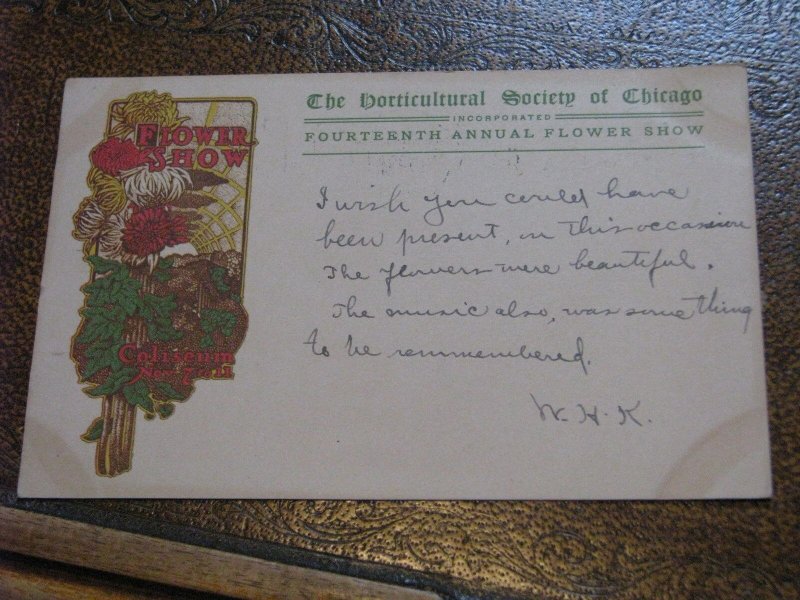 The Horticultural Society of Chicago
INCORPORATED
FOURTEENTH ANNUAL FLOWER SHOW
FLOWER
SHOW
Coliseum
Nov. 7 11
I wish you could have
been present, on this occasion
The flowers were beautiful.
The music also, was something
to be remmembered.
W. H. K.